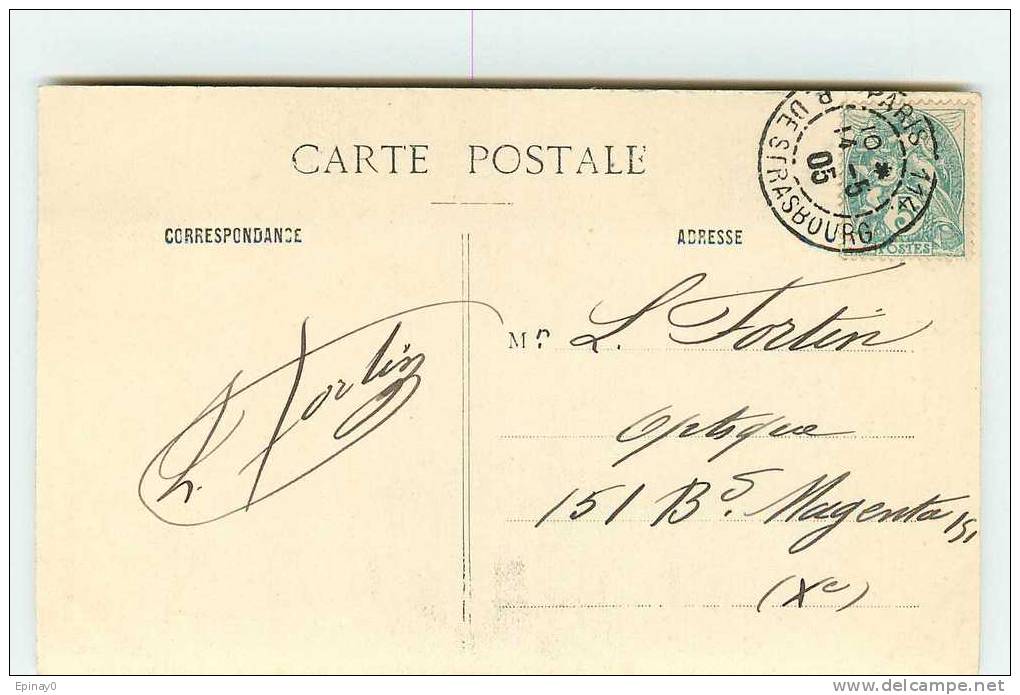 CARTE POSTALE
PARIS 114
R. DE STRASBOURG
10 * 
14 -5
05
POSTES
CORRESPONDANCE
ADRESSE
L. Fortin
Mr L. Fortin
Optique
151 Bd. Magenta 151
(Xe)
Epinay0
www.delcampe.net